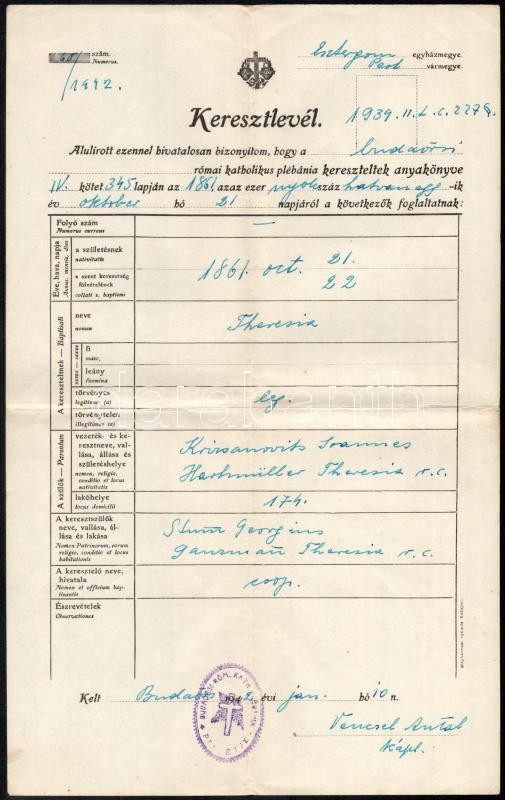 szám.
Numerus.
/1942.
Esztergom egyházmegye.
Pest vármegye.
Keresztlevél.
1939. II. t. c. 227 §.
Alulirott ezennel hivatalosan bizonyitom, hogy a budaörsi
római katholikus plébánia kereszteltek anyakönyve
IV. kötet 345 lapján az 1861, azaz ezer nyolcszáz hatvanegy -ik
év október hó 21 napjáról a következők foglaltatnak:
Folyó szám
Numerus currens
—
Éve, hava, napja
Annus, mensis, dies
a születésnek
nativitatis
a szent keresztség
fölvételének
collati s. baptismi
1861. oct. 21.
22
A kereszteltnek — Baptisati
neve
nomen
Theresia
fi
masc.
leány
foemina
törvényes
legitimus (a)
leg.
törvénytelen
illegitimus (a)
A szülők — Parentum
vezeték- és ke-
resztneve, val-
lása, állása és
születéshelye
nomen, religio,
conditio et locus
nativitatis
Krizsanovits Joannes
Hartmüller Theresia r. c.
lakóhelye
locus domicilii
174.
A keresztszülők
neve, vallása, ál-
lása és lakása
Nomen Patrinorum, eorum
religio, conditio et locus
habitationis
Sturm Georgius
Ganzmann Theresia r. c.
A keresztelő neve,
hivatala
Nomen et officium bap-
tisantis
coop.
Észrevételek
Observationes
darabanth
Kelt Budaörs 1942 évi jan. hó 10 n.
Vencsel Antal
kápl.